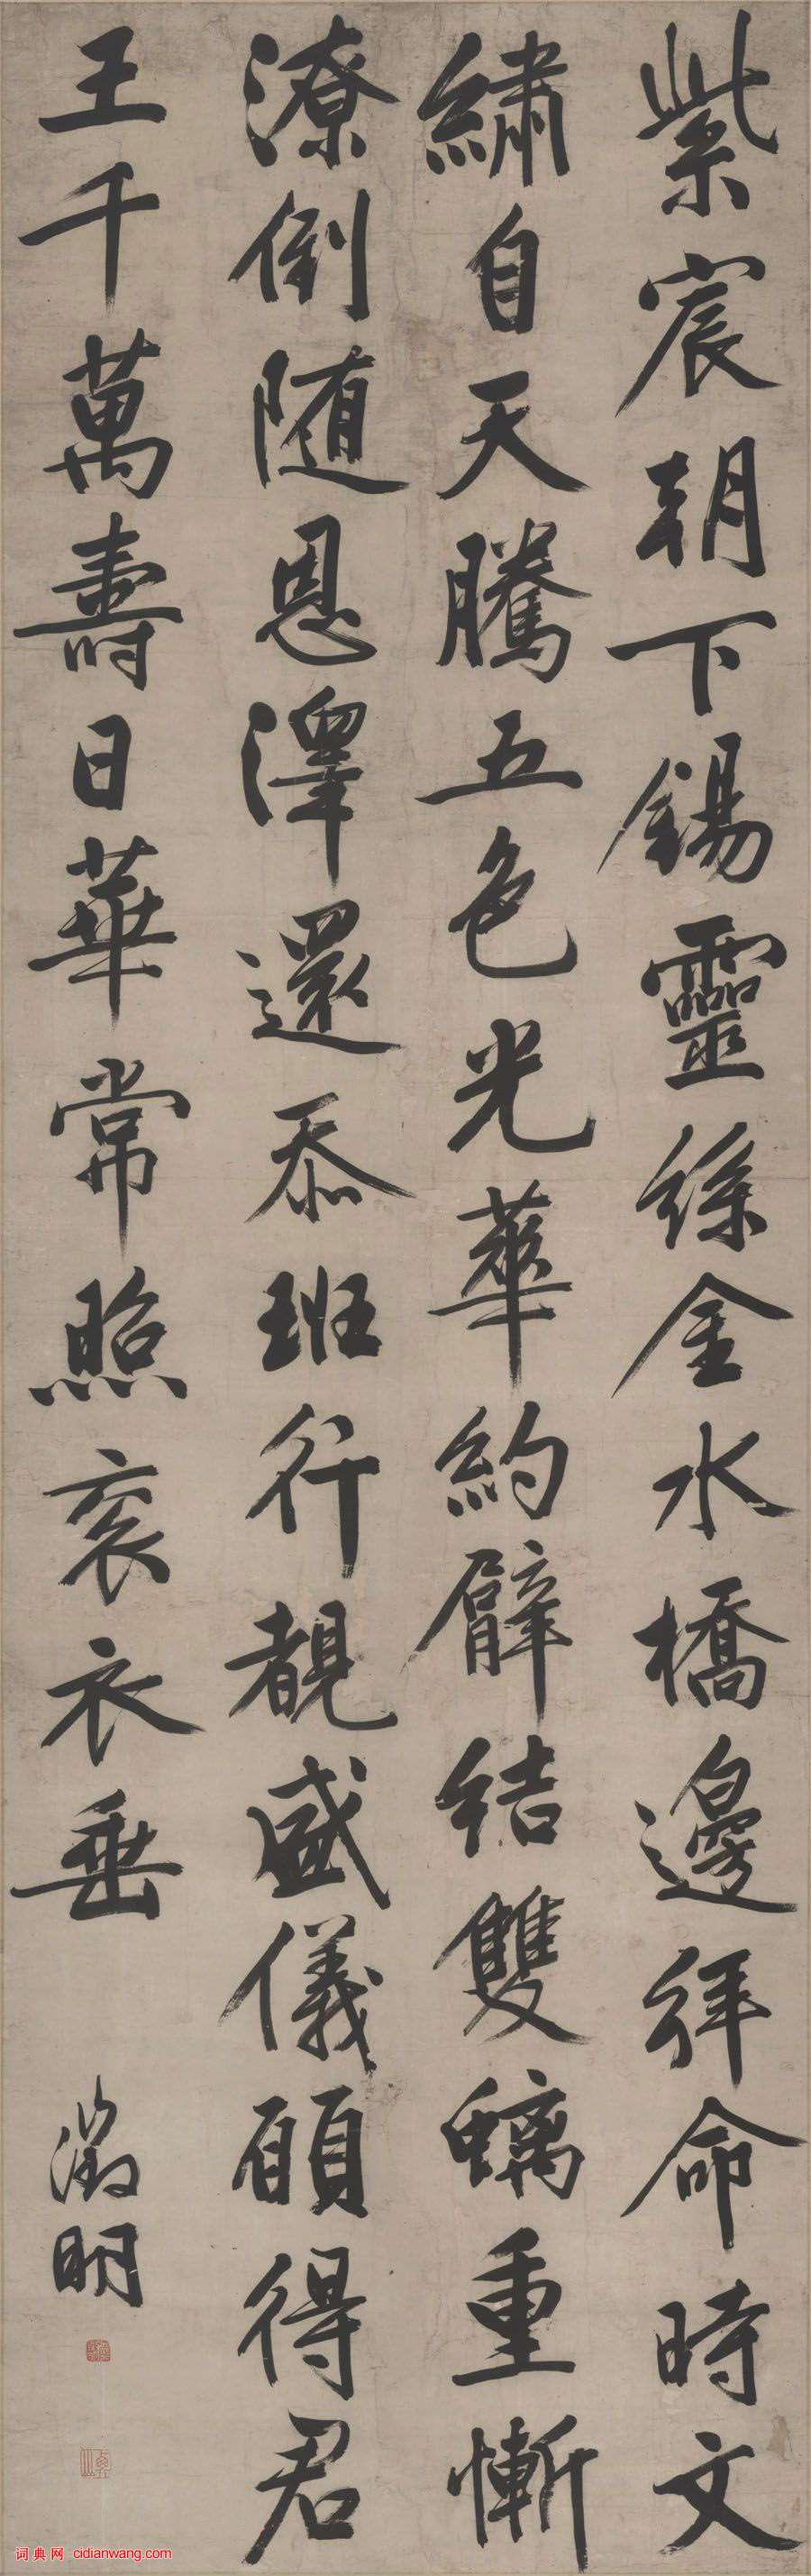 紫宸朝下錫靈絲金水橋邊拜命時文
繡自天騰五色光華約臂結雙螭重慚
潦倒随恩澤還忝班行覩盛儀願得君
王千萬壽日華常照衮衣垂
徵明
词典网 cidianwang.com